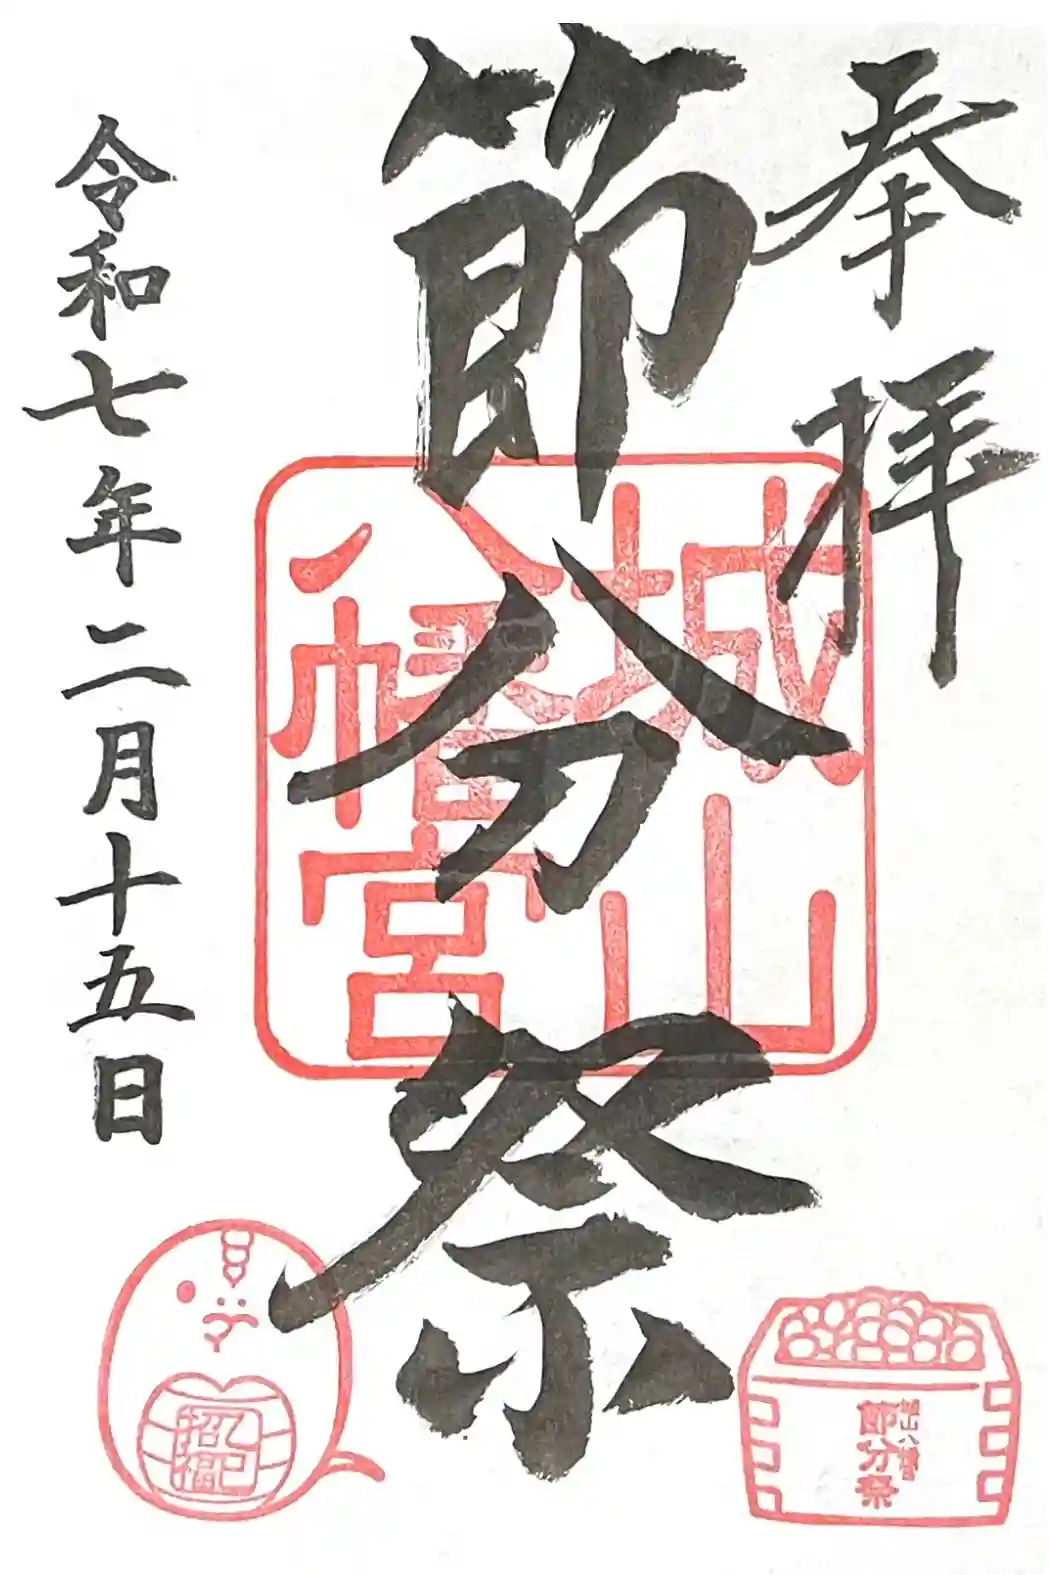 奉拝
節分祭
城山
八幡宮
令和七年二月十五日
城山八幡宮
節分祭
乙巳
招福